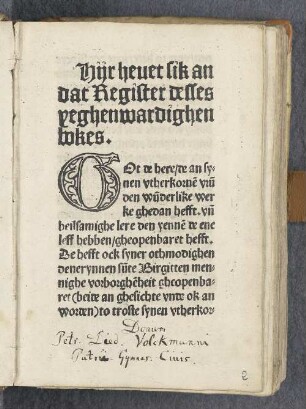 Hijr hevet sik an
dat Register desses
yeghenwardighen
bokes.
GOt de here/de an sy-
nen vtherkornē vrū
den wūderlike wer
ke ghedan hefft. vn̄
heilsamighe lere den yennē de ene
leff hebben/gheopenbaret hefft.
De hefft ock syner othmodighen
denerynnen sūte Birgitten men-
nighe vorborghēheit gheopenba-
ret (beide an ghesichte vnde ok an
worden) to troste synen vtherkor-
Donum
Petr. Died. Volckmanni
Patrii Gymnas. Civis.
2